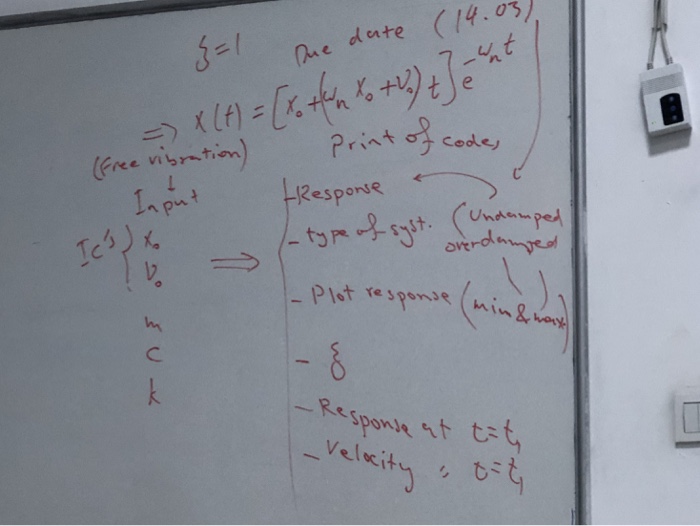 ξ=1 Due date (14.03)
⇒ x(t) = [x₀+(ωₙ x₀+v₀) t] e^-ωₙt
(Free vibration) Print of codes
↓
Input
Ic's } x₀
v₀
m
c
k
⇒
- Response
- type of syst. (Undamped
overdamped
- Plot response (min & max)
- ξ
- Response at t=t₁
- Velocity " t=t₁